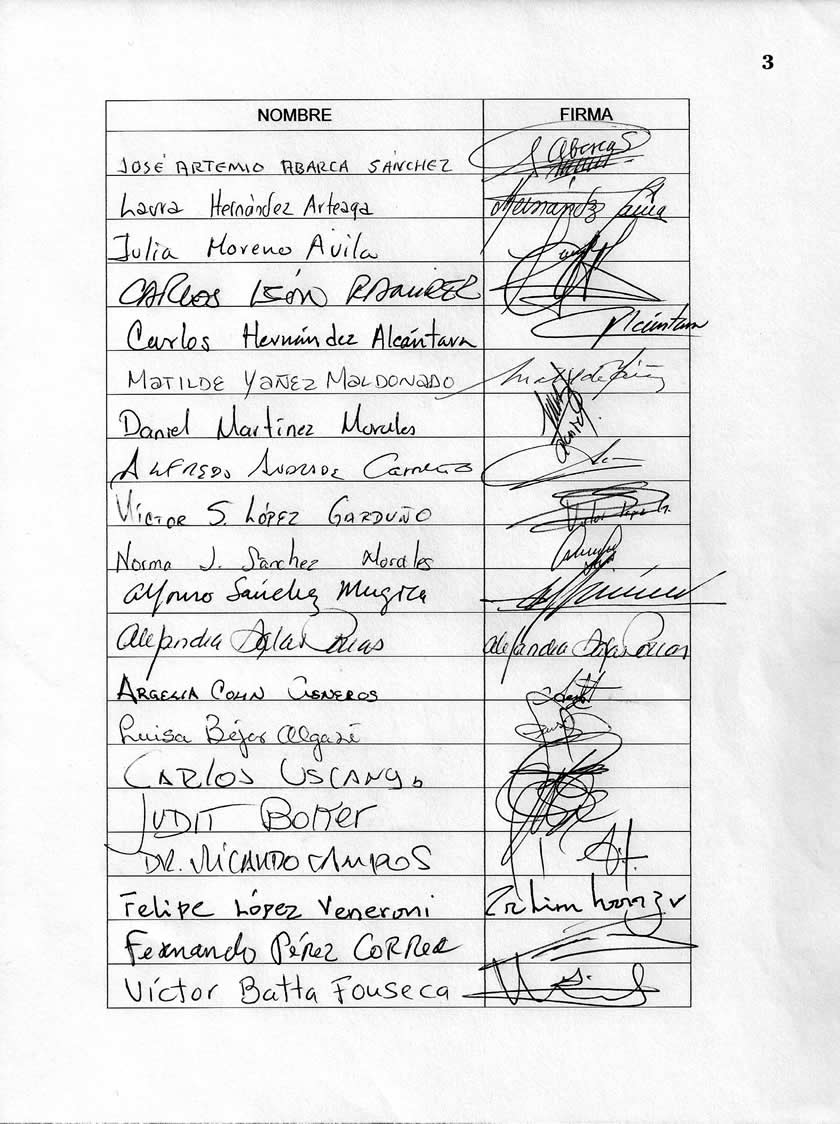 3
NOMBRE FIRMA
JOSÉ ARTEMIO ABARCA SÁNCHEZ Abarca S
Laura Hernández Arteaga Hernández Laura
Julia Moreno Avila
CARLOS LEÓN RAMÍREZ
Carlos Hernández Alcántara Alcántara
MATILDE YAÑEZ MALDONADO Matilde Yáñez
Daniel Martínez Morales Daniel
ALFREDO ANDRADE Carreño
VÍCTOR S. LÓPEZ GARDUÑO Victor Lopez G.
Norma J. Sánchez Morales
Alfonso Sánchez Mugica
Alejandra Salas Porras Alejandra Salas Porras
ARGELIA COLIN CISNEROS
Luisa Béjar Algazi
CARLOS USCANGA
JUDIT BOKER
DR. RICARDO CAMPOS
Felipe López Veneroni
Fernando Pérez CORREA
Víctor Batta Fonseca